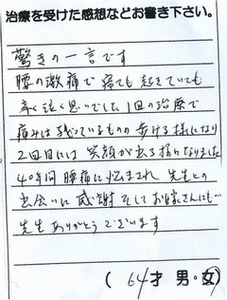 治療を受けた感想などお書き下さい。
驚きの一言です
腰の激痛で寝ても起きていても
辛く思いでした。1回の治療で
痛みは残っているものの歩ける様になり
2回目には笑顔が出る様になりました
40年間腰痛に悩まされ先生との
出会いに感謝そしてお嫁さんにも…
先生ありがとうございます
(64才 男・女)